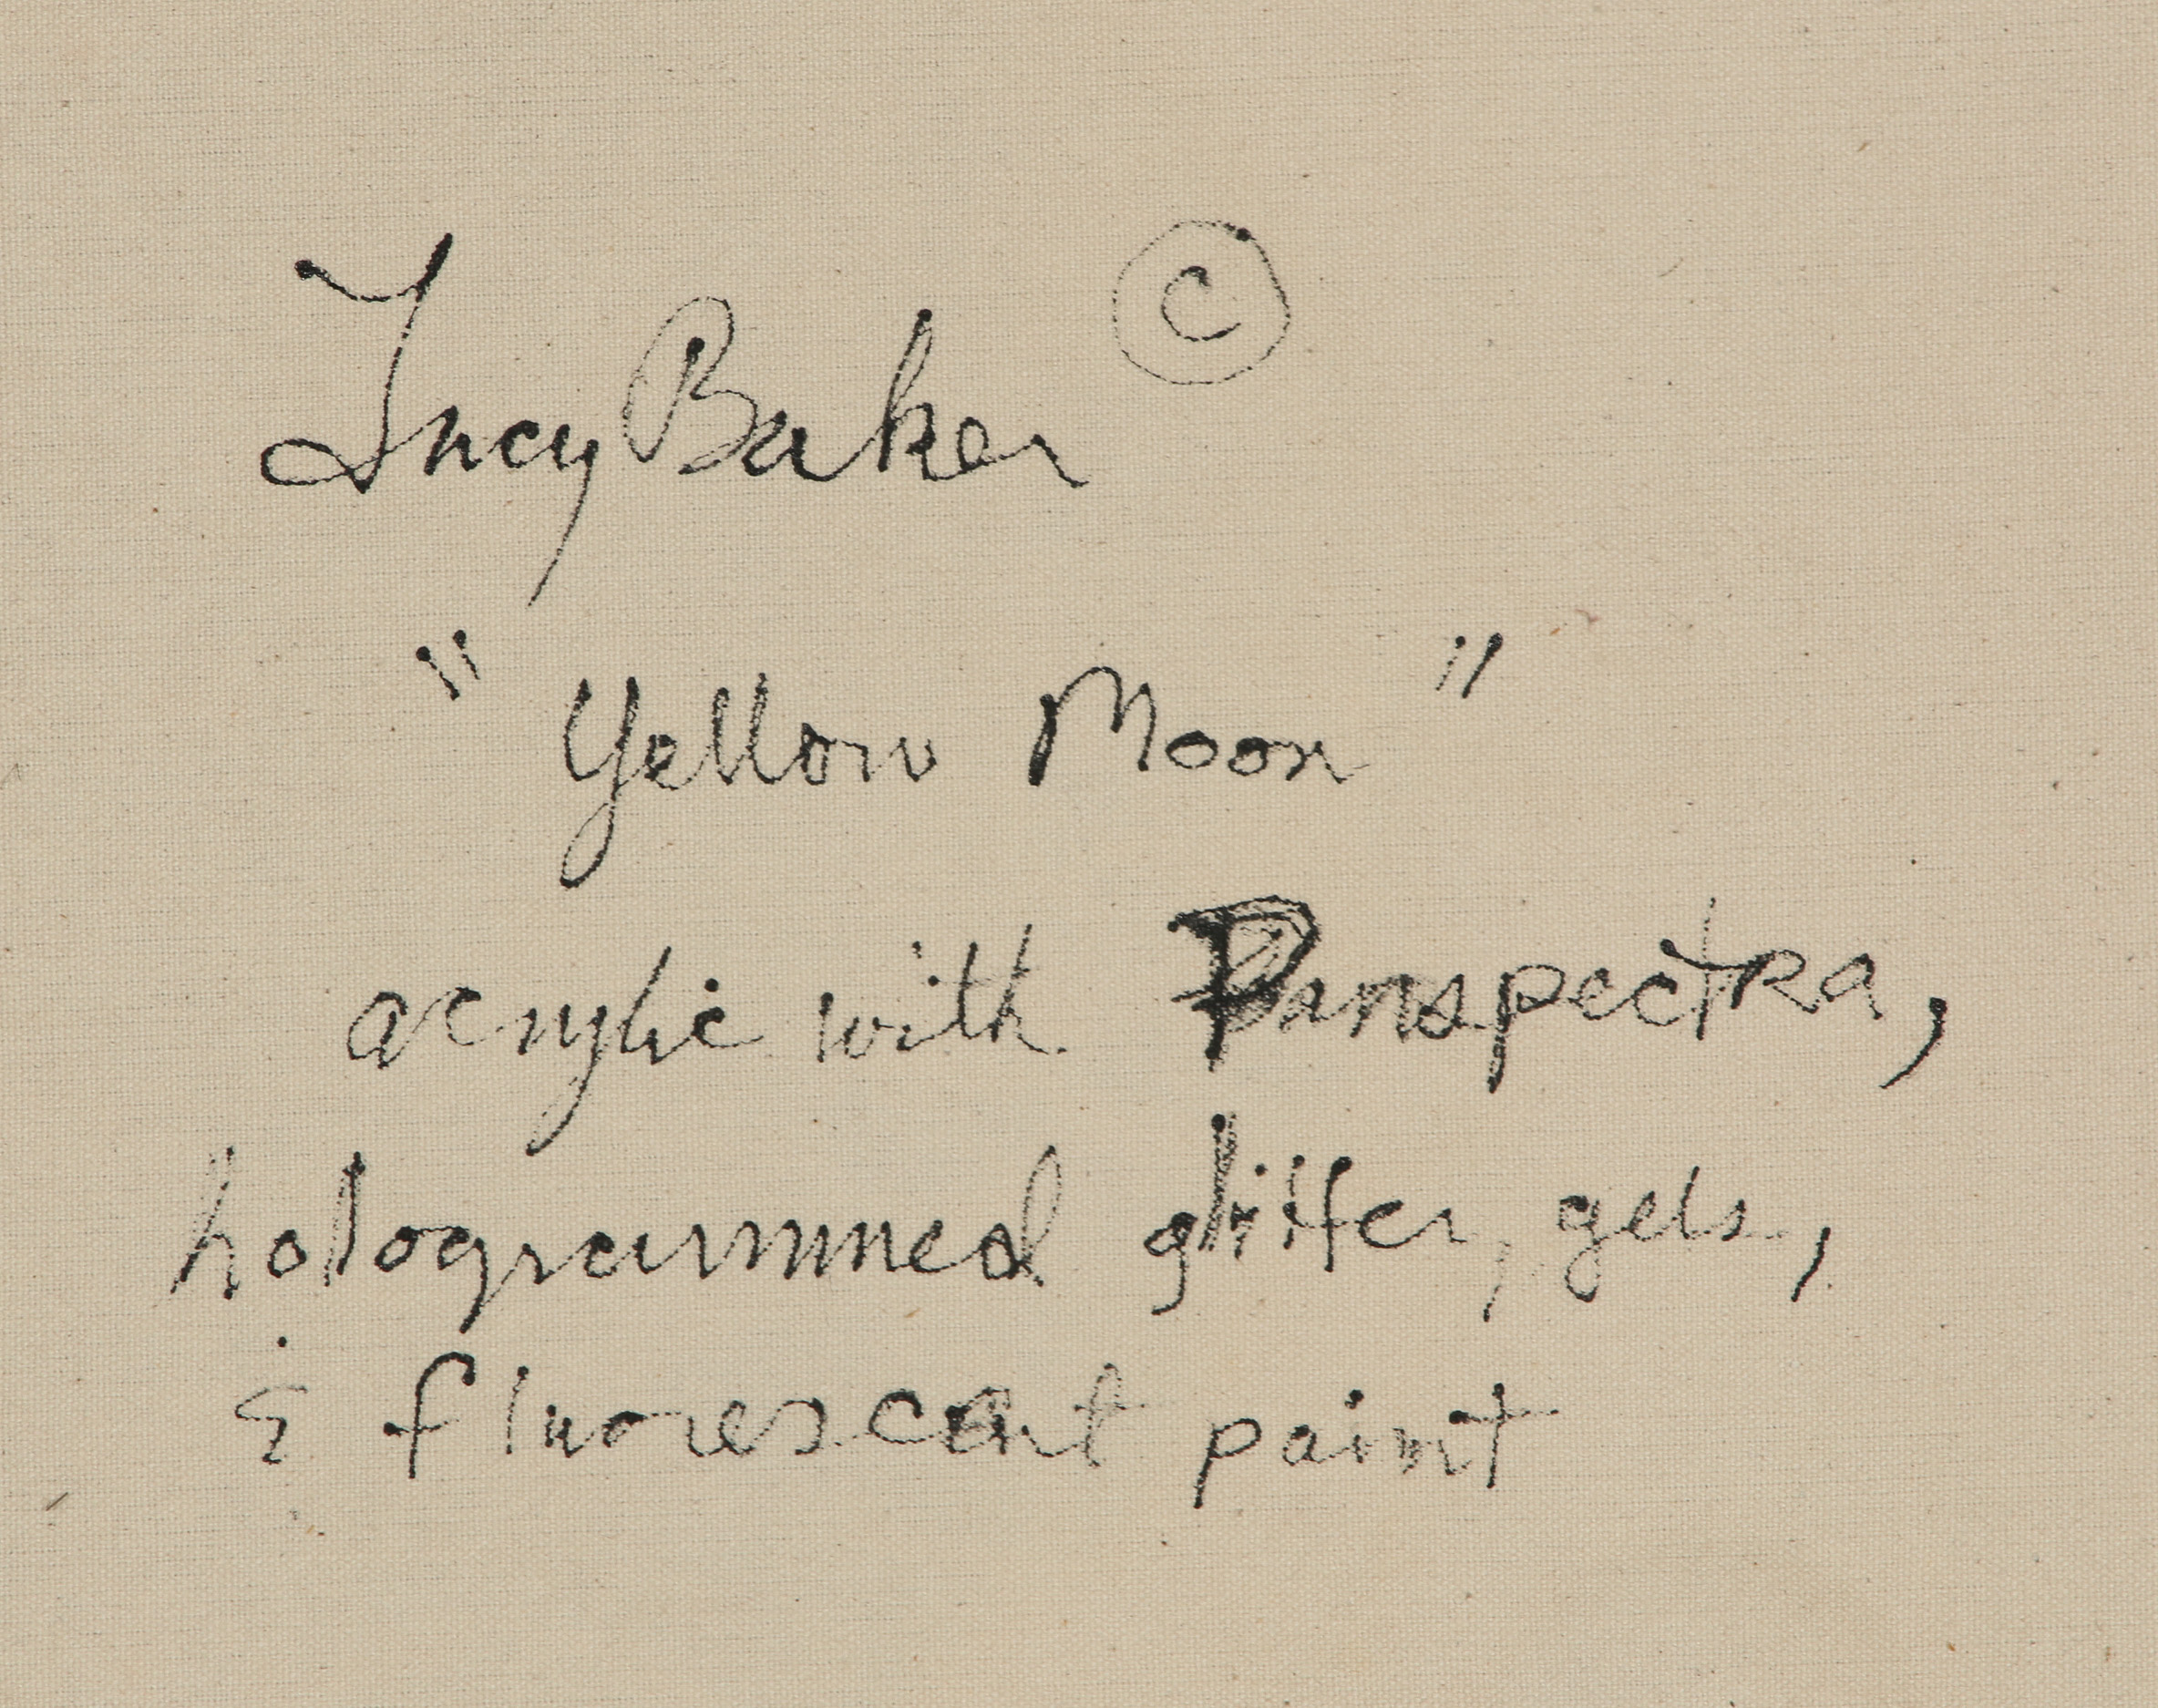 Lucy Baker ©
"Yellow Moon"
acrylic with Panspectra,
hologrammed glitter, gels,
& fluorescent paint